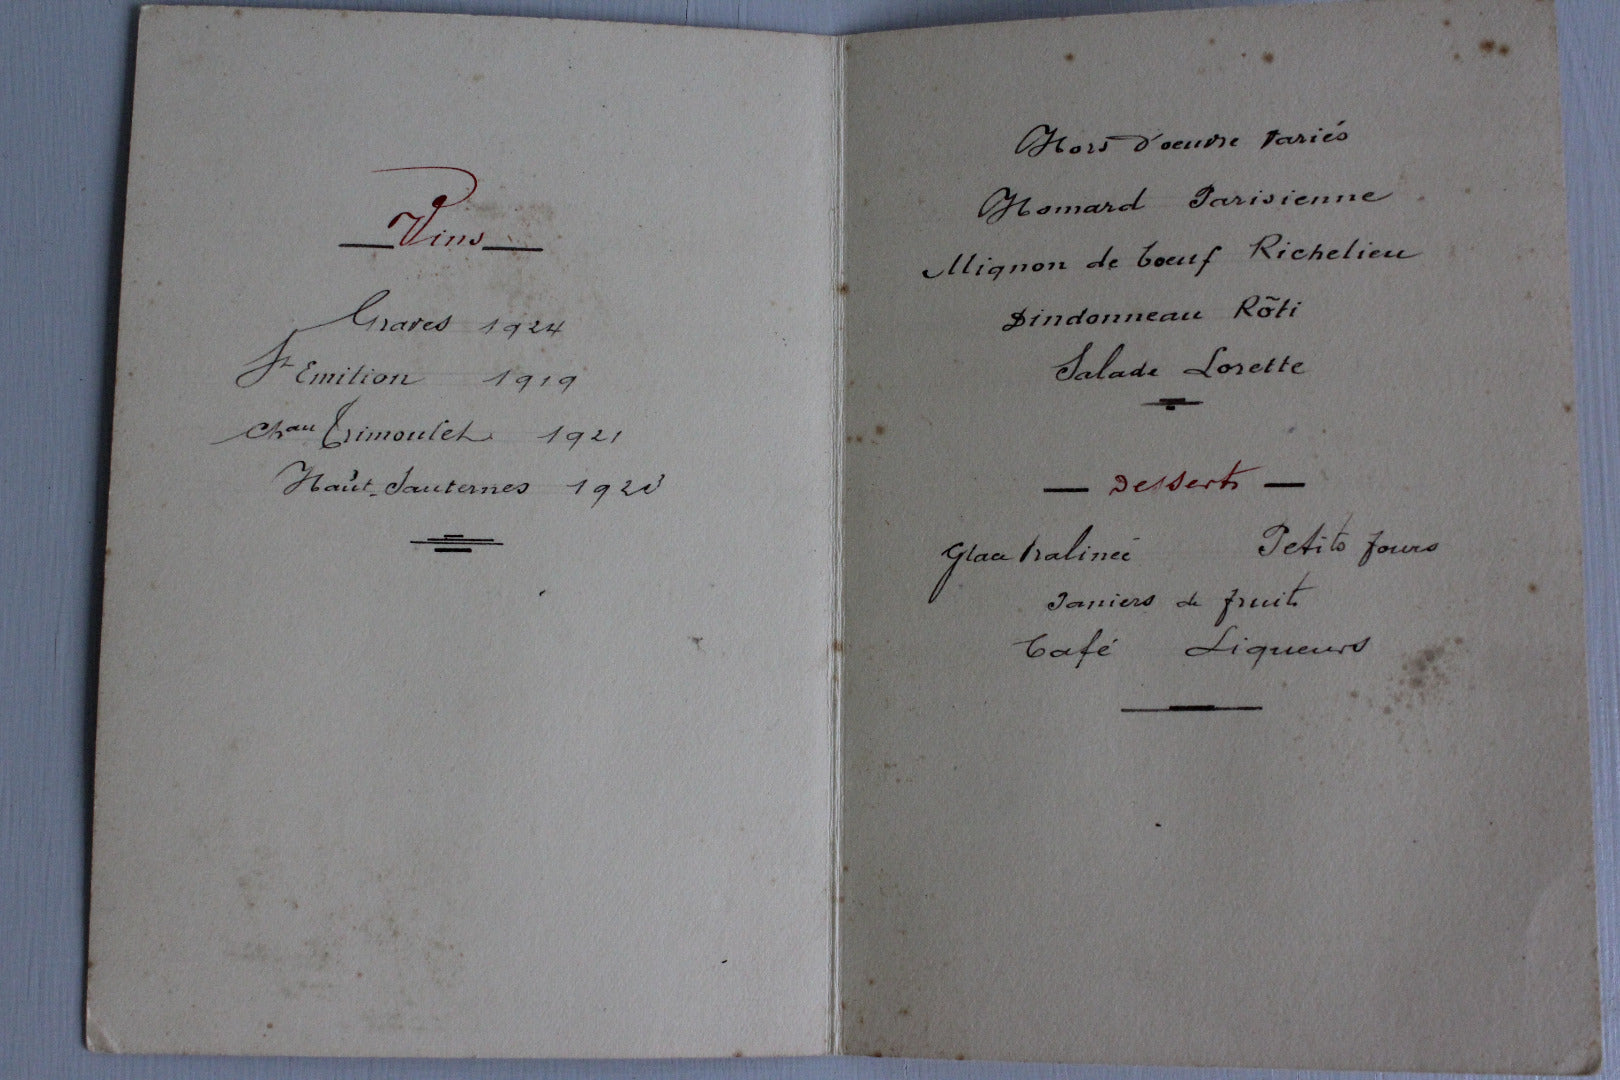 Vins
Graves 1924
St Emilion 1919
Chau Trimoulet 1921
Haut-Sauternes
Hors d'oeuvre variés
Homard Parisienne
Mignon de boeuf Richelieu
Dindonneau Rôti
Salade Lorette
Desserts
Glace Pralinée Petits fours
Paniers de fruits
Café Liqueurs